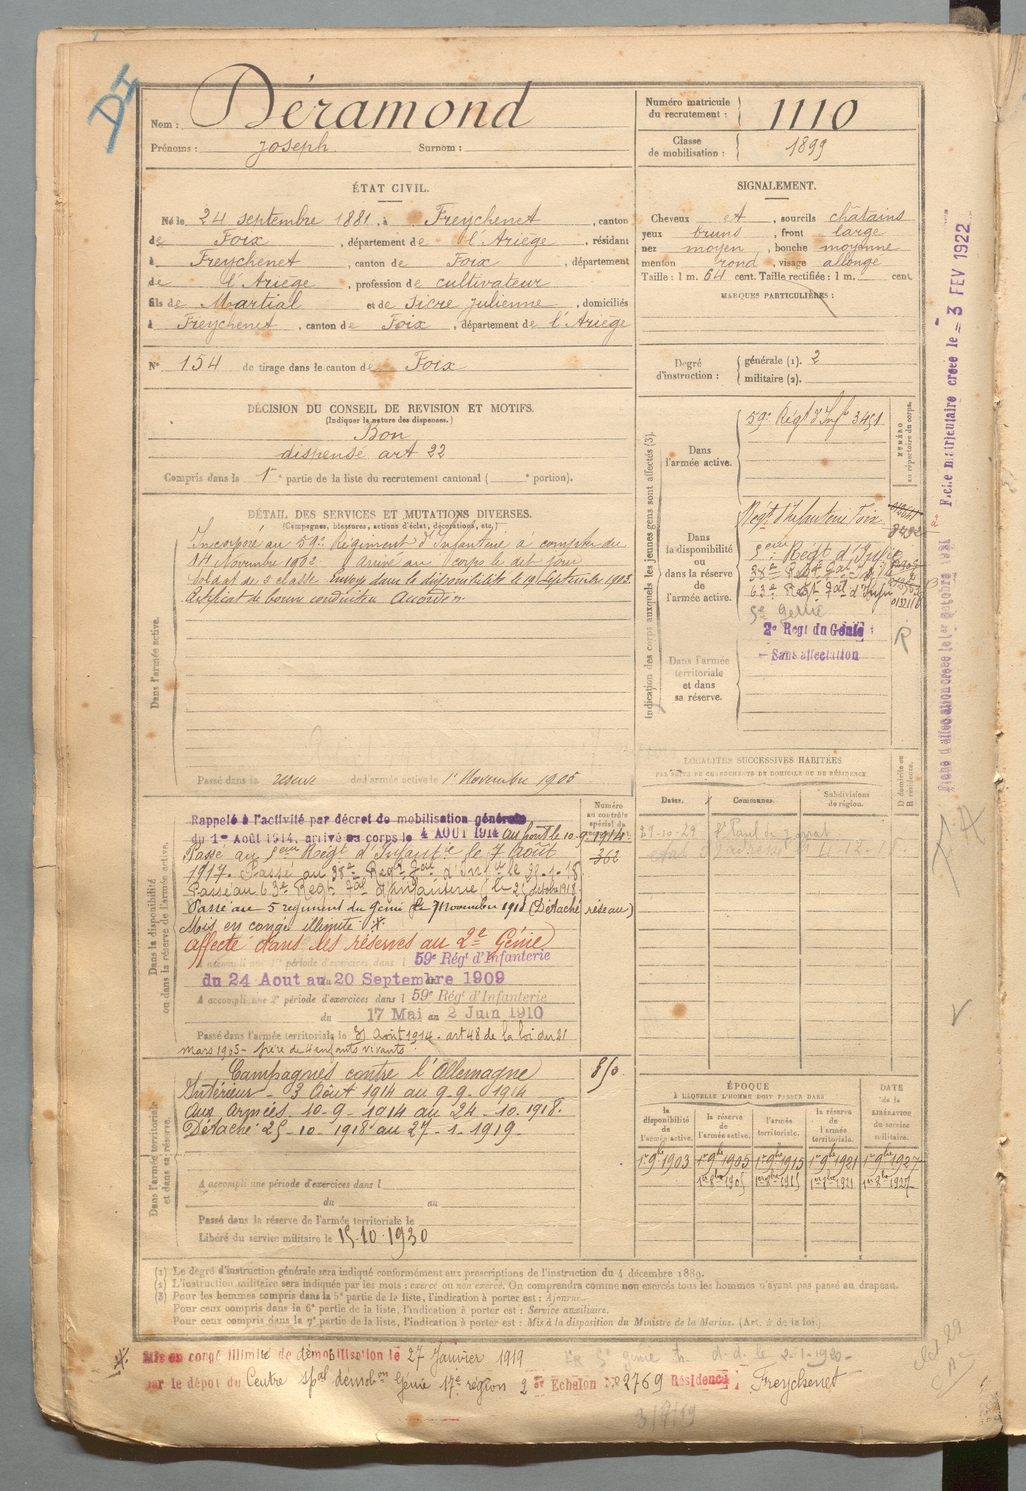 DI
Nom : Déramond
Prénoms : Joseph Surnom :
Numéro matricule du recrutement : 1110
Classe de mobilisation : 1899
ÉTAT CIVIL.
Né le 24 septembre 1881, à Freychenet, canton
de Foix, département de l'Ariège, résidant
à Freychenet, canton de Foix, département
de l'Ariège, profession de cultivateur
fils de Martial et de Sicre Julienne, domiciliés
à Freychenet, canton de Foix, département de l'Ariège
N° 154 de tirage dans le canton de Foix
SIGNALEMENT.
Cheveux et, sourcils châtains
yeux bruns, front large
nez moyen, bouche moyenne
menton rond, visage allongé
Taille : 1 m. 64 cent. Taille rectifiée : 1 m. cent.
MARQUES PARTICULIÈRES :
Degré d'instruction : générale (1). 2
militaire (2).
DÉCISION DU CONSEIL DE REVISION ET MOTIFS.
(Indiquer la nature des dispenses.)
Bon
dispensé art 22
Compris dans la 1e partie de la liste du recrutement cantonal ( e portion).
DÉTAIL DES SERVICES ET MUTATIONS DIVERSES.
(Campagnes, blessures, actions d'éclat, décorations, etc.)
Dans l'armée active.
Incorporé au 59e Régiment d'Infanterie à compter du
14 Novembre 1902. Arrivé au corps le dit jour
soldat de 2e classe. Envoyé dans la disponibilité le 19 Septembre 1903
Certificat de bonne conduite accordé.
Passé dans la réserve de l'armée active le 1er Novembre 1905
Indication des corps auxquels les jeunes gens sont affectés (3).
NUMÉRO au répertoire du corps.
Dans l'armée active.
59e Régt d'Infie 3451
Dans la disponibilité ou dans la réserve de l'armée active.
Régt d'Infanterie Foix
8492
38e Régt
63e Régt d'Infie
5e Génie
2e Régt du Génie
Sans affectation
R
Dans l'armée territoriale et dans sa réserve.
Fiche d'affectation créée le 1er Octobre
Fiche matriculaire créée le = 3 FEV 1922
LOCALITÉS SUCCESSIVES HABITÉES
PAR SUITE DE CHANGEMENTS DE DOMICILE OU DE RÉSIDENCE
Dates. Communes. Subdivisions de région. D domicile ou R résidence.
-10-29 St Paul de Jarrat
Dans la disponibilité ou dans la réserve de l'armée active.
Numéro au contrôle spécial
Rappelé à l'activité par décret de mobilisation générale
du 1er Août 1914, arrivé au corps le 4 AOUT 1914 au front le 10-9-1914
362
Passé au Régt d'Infantie le 7 Août
1917. Passé au 38e Régt d'Infie le 31-1-18
Passé au 63e Régt d'Infanterie le 25 octobre 1918
Passé au 5 régiment du génie le 7 Novembre 1918 (Détaché réseau)
Mis en congé illimité ※
affecté dans les réserves au 2e Génie
A accompli une 1re période d'exercices dans l 59e Régt d'Infanterie
du 24 Aout au 20 Septembre 1909
A accompli une 2e période d'exercices dans l 59e Régt d'Infanterie
du 17 Mai au 2 Juin 1910
Passé dans l'armée territoriale le 31 Août 1914 - art 48 de la loi du 21
mars 1905 - père de 4 enfants vivants.
Dans l'armée territoriale et dans sa réserve.
Campagnes contre l'Allemagne
Intérieur - 3 Août 1914 au 9-9-1914
Aux armées - 10-9-1914 au 24-10-1918.
Détaché 25-10-1918 au 27-1-1919
A accompli une période d'exercices dans l
du au
Passé dans la réserve de l'armée territoriale le
Libéré du service militaire le 15-10-1930
ÉPOQUE
À LAQUELLE L'HOMME DOIT PASSER DANS
DATE de la LIBÉRATION du service militaire.
la disponibilité de l'armée active. la réserve de l'armée active. l'armée territoriale. la réserve de l'armée territoriale.
1er 9bre 1903 1er 9bre 1905 1er 9bre 1915 1er 9bre 1921 1er 9bre 1927
1er 8bre 1905 1er 8bre 1915 1er 8bre 1921 1er 8bre 1927
(1) Le degré d'instruction générale sera indiqué conformément aux prescriptions de l'instruction du 4 décembre 1889.
(2) L'instruction militaire sera indiquée par les mots : exercé ou non exercé. On comprendra comme non exercés tous les hommes n'ayant pas passé au drapeau.
(3) Pour les hommes compris dans la 5e partie de la liste, l'indication à porter est : Ajourné.
Pour ceux compris dans la 6e partie de la liste, l'indication à porter est : Service auxiliaire.
Pour ceux compris dans la 7e partie de la liste, l'indication à porter est : Mis à la disposition du Ministre de la Marine. (Art. 4 de la loi.)
※ Mis en congé illimité de démobilisation le 27 Janvier 1919
par le dépôt du Centre spal démobon Génie 17e région 2e Echelon N° 2769 Résidence Freychenet